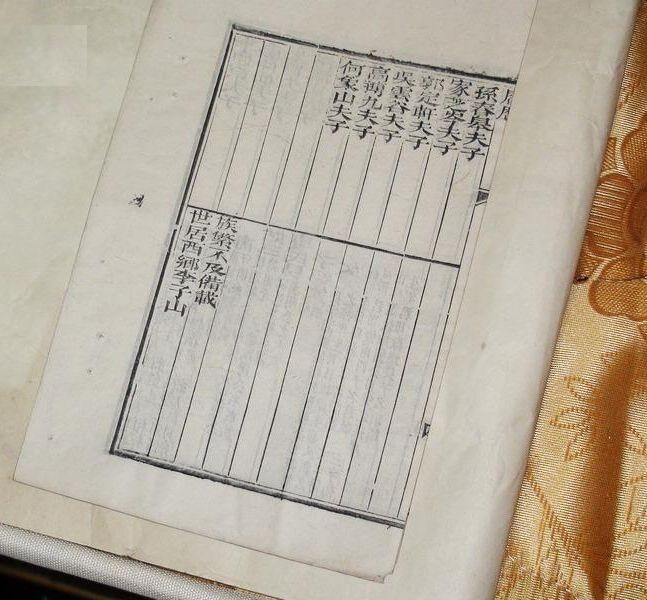 孫春夫子
家夫子
郭軒夫子
吳雲谷夫子
高九夫子
何山夫子
族繁不及備載
世居西鄉李子山